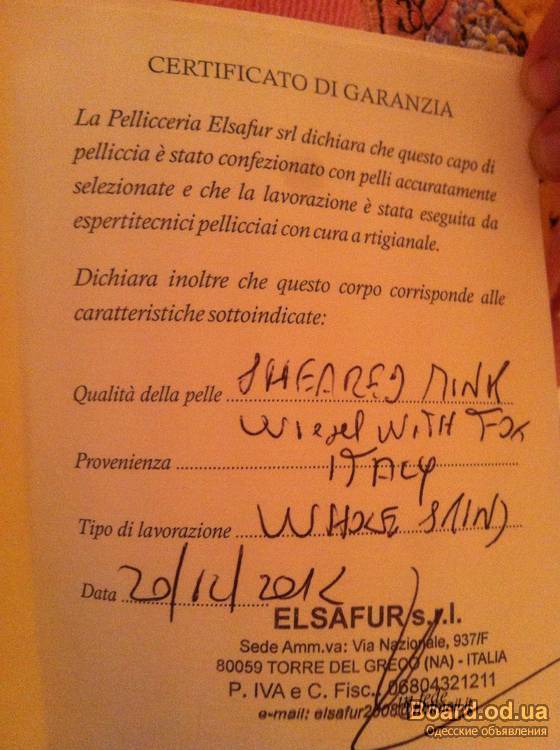 CERTIFICATO DI GARANZIA
La Pellicceria Elsafur srl dichiara che questo capo di
pelliccia è stato confezionato con pelli accuratamente
selezionate e che la lavorazione è stata eseguita da
espertitecnici pellicciai con cura a rtigianale.
Dichiara inoltre che questo corpo corrisponde alle
caratteristiche sottoindicate:
Qualità della pelle SHEARED MINK
WITH FOX
Provenienza ITALY
Tipo di lavorazione WHOLE SKIN
Data 20/12/2012
ELSAFUR s.r.l.
Sede Amm.va: Via Nazionale, 937/F
80059 TORRE DEL GRECO (NA) - ITALIA
P. IVA e C. Fisc. 06804321211
e-mail: elsafur2008@
Board.od.ua
Одесские объявления